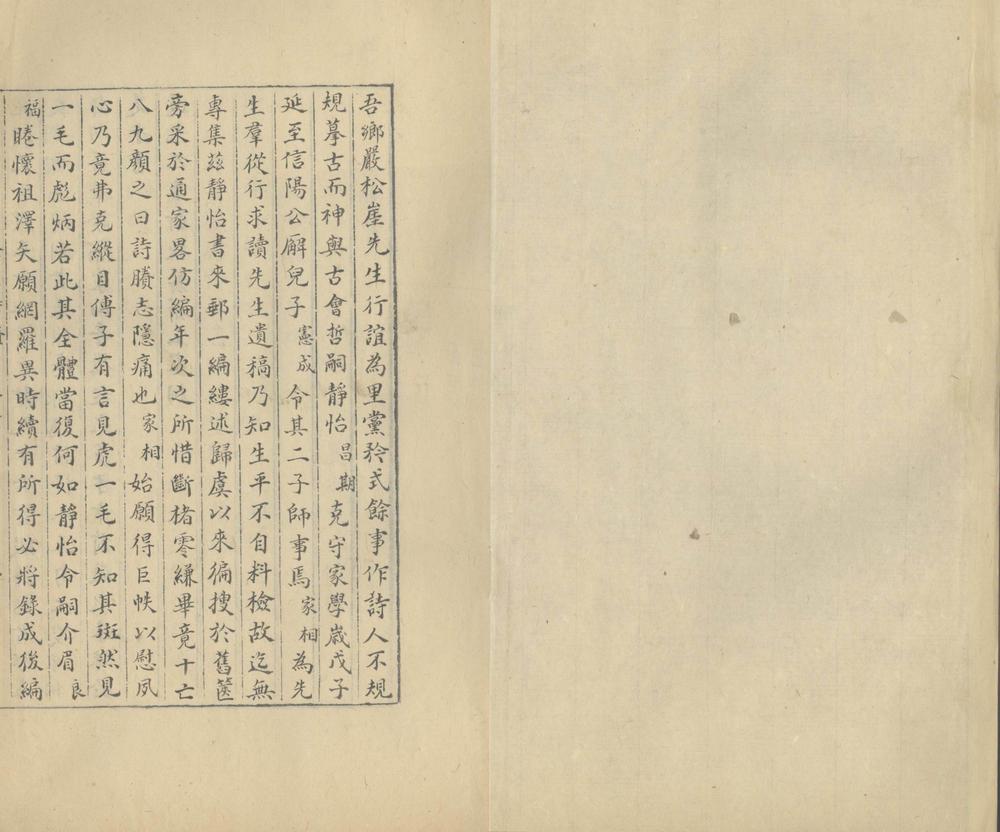 吾鄉嚴松崖先生行誼為里黨矜式餘事作詩人不規
規摹古而神與古會哲嗣靜怡昌期克守家學歲戊子
延至信陽公廨兒子憲成令其二子師事焉家相為先
生羣從行求讀先生遺稿乃知生平不自料檢故迄無
專集茲靜怡書來郵一編縷述歸虞以來徧搜於舊篋
旁采於通家畧仿編年次之所惜斷楮零縑畢竟十亡
八九顏之曰詩賸志隱痛也家相始願得巨帙以慰夙
心乃竟弗克縱目傅子有言見虎一毛不知其斑然見
一毛而彪炳若此其全體當復何如靜怡令嗣介眉良
福睠懷祖澤矢願網羅異時續有所得必將錄成後編